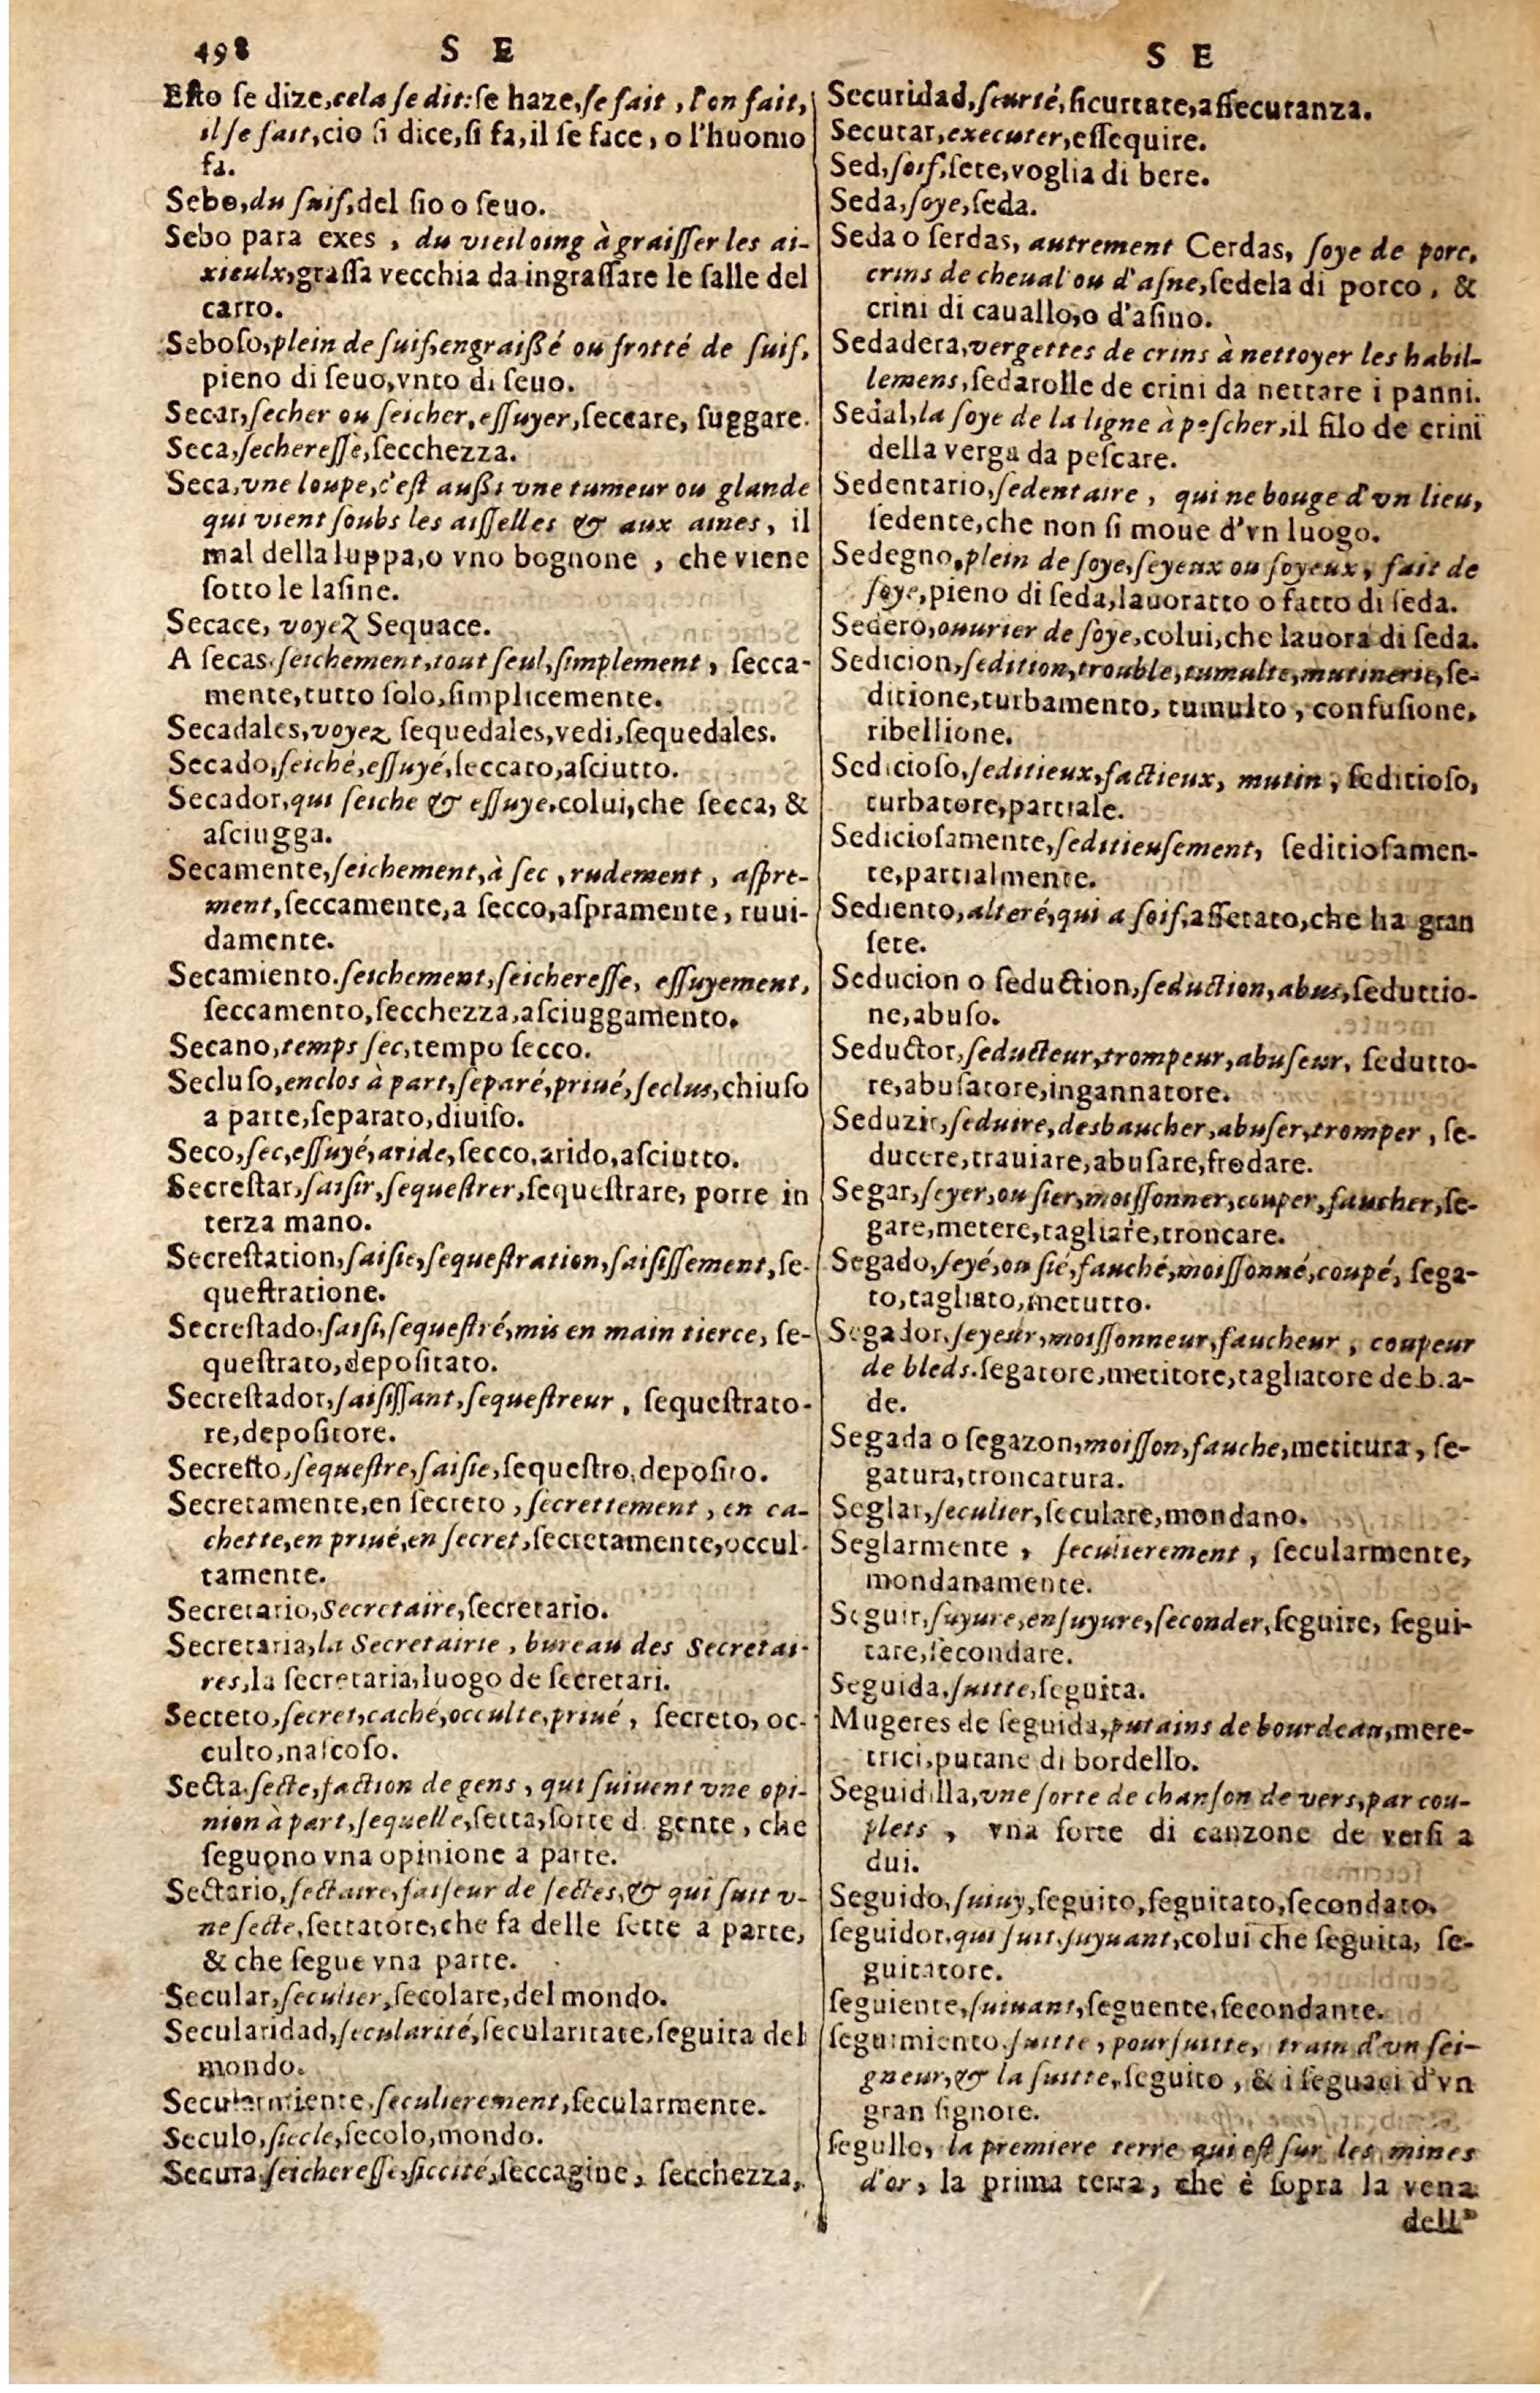 498 S E
Eſto ſe dize, cela ſe dit: ſe haze, ſe fait, l'on fait,
il ſe fait, cio ſi dice, ſi fa, il ſe face, o l'huomo
fa.
Sebo, du ſuif, del ſio o ſeuo.
Sebo para exes, du vieil oing à graiſſer les ai-
xieulx, graſſa vecchia da ingraſſare le ſalle del
carro.
Seboſo, plein de ſuif, engraißé ou frotté de ſuif,
pieno di ſeuo, vnto di ſeuo.
Secar, ſecher ou ſeicher, eſſuyer, ſeccare, ſuggare.
Seca, ſechereſſe, ſecchezza.
Seca, vne loupe, c'eſt außi vne tumeur ou glande
qui vient ſoubs les aiſſelles & aux aines, il
mal della luppa, o vno bognone, che viene
ſotto le laſine.
Secace, voyez Sequace.
A ſecas. ſeichement, tout ſeul, ſimplement, ſecca-
mente, tutto ſolo, ſimplicemente.
Secadales, voyez ſequedales, vedi, ſequedales.
Secado, ſeiché, eſſuyé, ſeccato, aſciutto.
Secador, qui ſeiche & eſſuye, colui, che ſecca, &
aſciugga.
Secamente, ſeichement, à ſec, rudement, aſpre-
ment, ſeccamente, a ſecco, aſpramente, ruui-
damente.
Secamiento. ſeichement, ſeichereſſe, eſſuyement,
ſeccamento, ſecchezza, aſciuggamento.
Secano, temps ſec, tempo ſecco.
Secluſo, enclos à part, ſeparé, priué, ſeclus, chiuſo
a parte, ſeparato, diuiſo.
Seco, ſec, eſſuyé, aride, ſecco, arido, aſciutto.
Secreſtar, ſaiſir, ſequeſtrer, ſequeſtrare, porre in
terza mano.
Secreſtacion, ſaiſie, ſequeſtration, ſaiſiſſement, ſe-
queſtratione.
Secreſtado. ſaiſi, ſequeſtré, mis en main tierce, ſe-
queſtrato, depoſitato.
Secreſtador, ſaiſiſſant, ſequeſtreur, ſequeſtrato-
re, depoſitore.
Secreſto, ſequeſtre, ſaiſie, ſequeſtro, depoſito.
Secretamente, en ſecreto, ſecrettement, en ca-
chette, en priué, en ſecret, ſecretamente, occul-
tamente.
Secretario, Secretaire, ſecretario.
Secretaria, la Secretairie, bureau des Secretai-
res, la ſecretaria, luogo de ſecretari.
Secreto, ſecret, caché, occulte, priué, ſecreto, oc-
culto, naſcoſo.
Secta. ſecte, faction de gens, qui ſuiuent vne opi-
nion à part, ſequelle, ſetta, ſorte d gente, che
ſeguono vna opinione a parte.
Sectario, ſectaire, faiſeur de ſectes, & qui ſuit v-
ne ſecte, ſettatore, che fa delle ſette a parte,
& che ſegue vna parte.
Secular, ſeculier, ſecolare, del mondo.
Secularidad, ſecularité, ſecularitate, ſeguita del
mondo.
Secularmiente, ſeculierement, ſecularmente.
Seculo, ſiecle, ſecolo, mondo.
Secura, ſeichereſſe, ſiccité, ſeccagine, ſecchezza,
S E
Securidad, ſeurté, ſicurtate, aſſecuranza.
Secutar, executer, eſſequire.
Sed, ſoif, ſete, voglia di bere.
Seda, ſoye, ſeda.
Seda o ſerdas, autrement Cerdas, ſoye de porc,
crins de cheual ou d'aſne, ſedela di porco, &
crini di cauallo, o d'aſino.
Sedadera, vergettes de crins à nettoyer les habil-
lemens, ſedarolle de crini da nettare i panni.
Sedal, la ſoye de la ligne à peſcher, il filo de crini
della verga da peſcare.
Sedentario, ſedentaire, qui ne bouge d'vn lieu,
ſedente, che non ſi moue d'vn luogo.
Sedegno, plein de ſoye, ſeyeux ou ſoyeux, fait de
ſoye, pieno di ſeda, lauoratto o fatto di ſeda.
Sedero, ouurier de ſoye, colui, che lauora di ſeda.
Sedicion, ſedition, trouble, tumulte, mutinerie, ſe-
ditione, turbamento, tumulto, confuſione,
ribellione.
Sedicioſo, ſeditieux, factieux, mutin, ſeditioſo,
turbatore, partiale.
Sedicioſamente, ſeditieuſement, ſeditioſamen-
te, partialmente.
Sediento, alteré, qui a ſoif, aſſetato, che ha gran
ſete.
Seducion o ſeduction, ſeduction, abus, ſeduttio-
ne, abuſo.
Seductor, ſeducteur, trompeur, abuſeur, ſedutto-
re, abuſatore, ingannatore.
Seduzir, ſeduire, desbaucher, abuſer, tromper, ſe-
ducere, trauiare, abuſare, frodare.
Segar, ſeyer, ou ſier, moiſſonner, couper, faucher, ſe-
gare, metere, tagliare, troncare.
Segado, ſeyé, ou ſié, fauché, moiſſonné, coupé, ſega-
to, tagliato, metutto.
Segador, ſeyeur, moiſſonneur, faucheur, coupeur
de bleds. ſegatore, metitore, tagliatore de b.a-
de.
Segada o ſegazon, moiſſon, fauche, metitura, ſe-
gatura, troncatura.
Seglar, ſeculier, ſeculare, mondano.
Seglarmente, ſeculierement, ſecularmente,
mondanamente.
Seguir, ſuyure, enſuyure, ſeconder, ſeguire, ſegui-
tare, ſecondare.
Seguida. ſuitte, ſeguita.
Mugeres de ſeguida, putains de bourdeau, mere-
trici, putane di bordello.
Seguidilla, vne ſorte de chanſon de vers, par cou-
plets, vna ſorte di canzone de verſi a
dui.
Seguido, ſuiuy, ſeguito, ſeguitato, ſecondato.
ſeguidor, qui ſuit, ſuyuant, colui che ſeguita, ſe-
guitatore.
ſeguiente, ſuiuant, ſeguente, ſecondante.
ſeguimiento. ſuitte, pourſuitte, train d'vn ſei-
gneur, & la ſuitte, ſeguito, & i ſeguaci d'vn
gran ſignore.
ſegullo, la premiere terre qui eſt ſur les mines
d'or, la prima terra, che è ſopra la vena
dell'